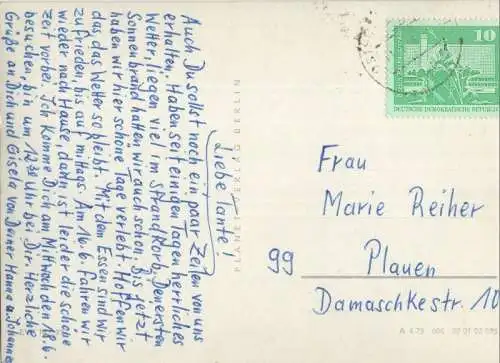 Liebe Tante!
Auch Du sollst noch ein paar Zeilen von uns
erhalten. Haben seit einigen Tagen herrliches
Wetter, liegen viel im Strandkorb. Den ersten
Sonnenbrand hatten wir auch schon. Bis jetzt
haben wir hier schöne Tage verlebt. Hoffen wir
das, das Wetter so bleibt. Mit dem Essen sind wir
zufrieden, bis auf mittags. Am 16.6. fahren wir
wieder nach Hause, dann ist leider die schöne
Zeit vorbei. Ich komme Dich am Mittwoch den 18.6.
besuchen, bin um 12 Uhr bei Dir. Herzliche
Grüße an Dich und Gisela von Deiner Hanna u. Johannes
PLANET-VERLAG BERLIN
10
DEUTSCHE DEMOKRATISCHE REPUBLIK
Frau
Marie Reiher
99 Plauen
Damaschkestr. 10